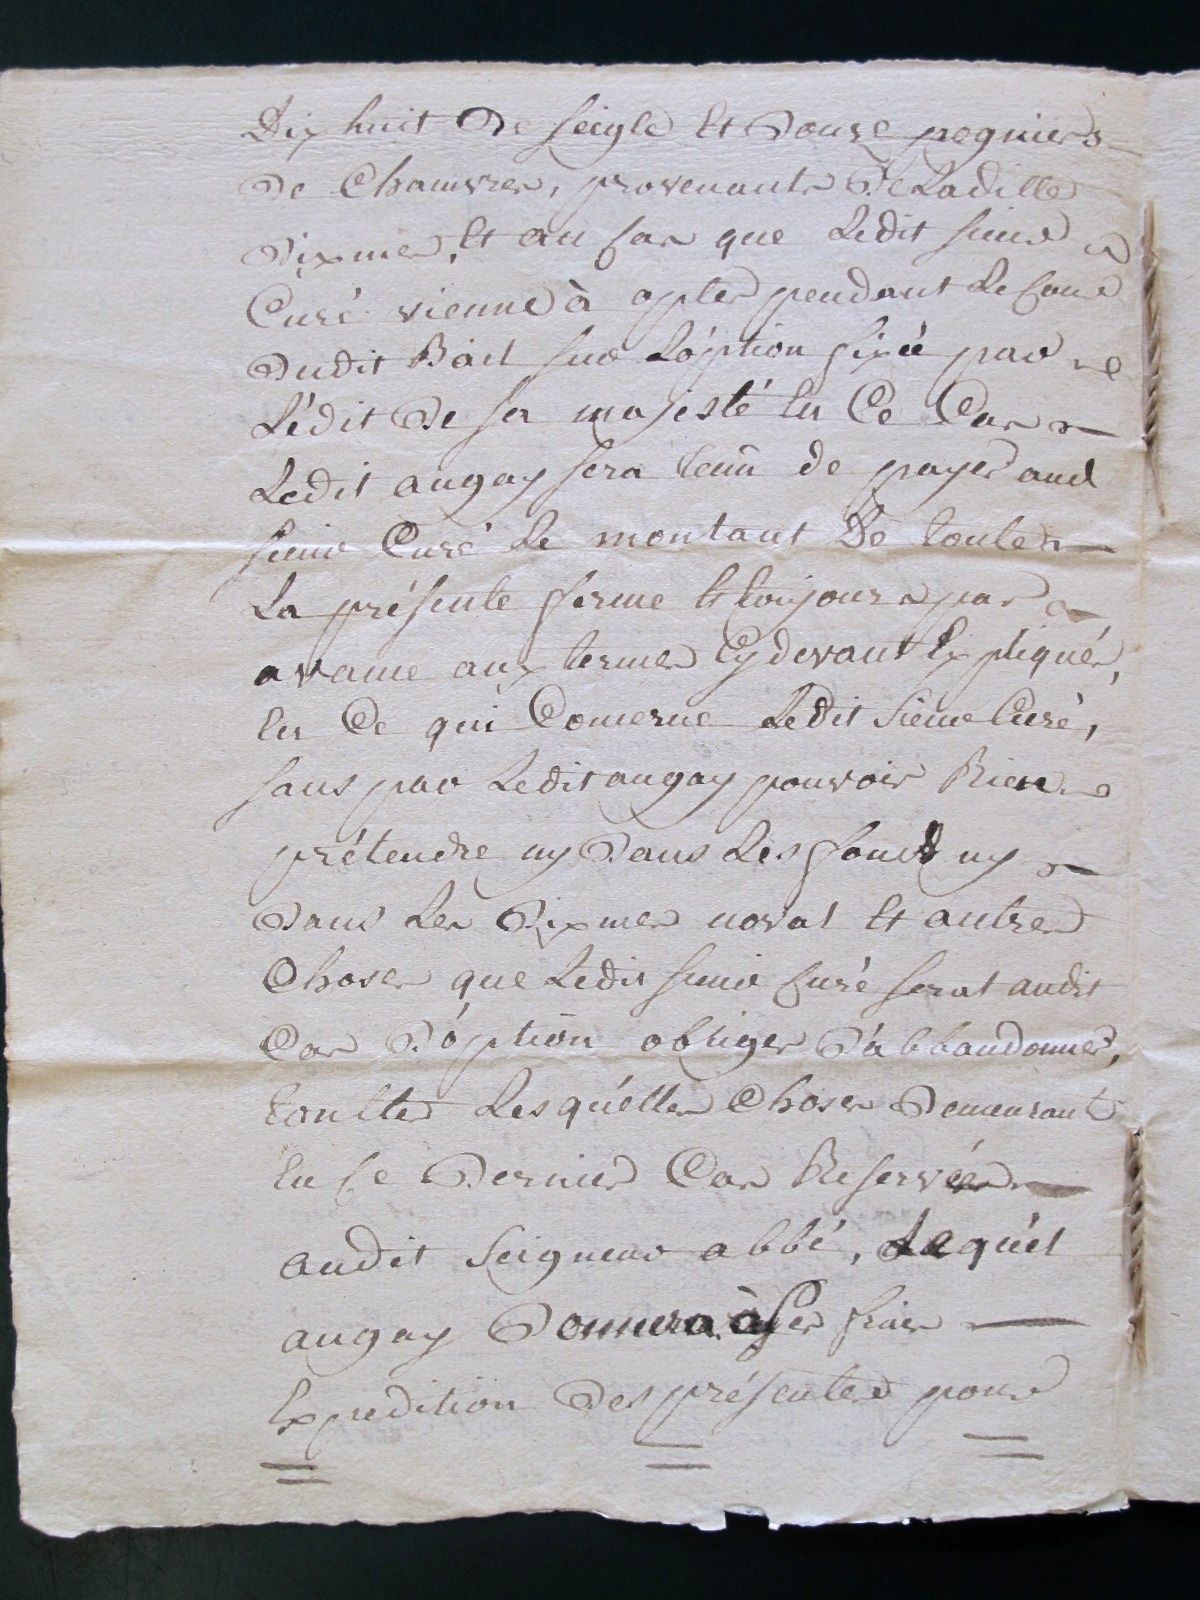 Dix huit De seigle Et Douze pogniers
De Chamvres, provenants De Ladille
Dixmes, Et au cas que Ledit sieur
Curé vienne à opter pendant Le cour
Dudit Bail sur L'óption fixée par
L'édit De sa majesté En Ce Cas
Ledit augay sera tenû de payer aud
sieur Curé Le montant De toutes
La présente ferme Et toujours par
avance aux termes Cy devant Expliqués,
En Ce qui Concerne Ledit sieur Curé,
sans par Ledit augay pouvoir Rien
prétendre ny Dans Les fond ny
Dans Les Dixmes noval Et autres
Choses que Ledit sieur curé serat audit
Cas D'óption obliger D'abbandonner,
touttes Lesquélles Choses Demeurant
En ce Dernier Cas Reservées
audit seigneur abbé, Lequél
augay Donnera à ses frais
Expedition Des présentes pour